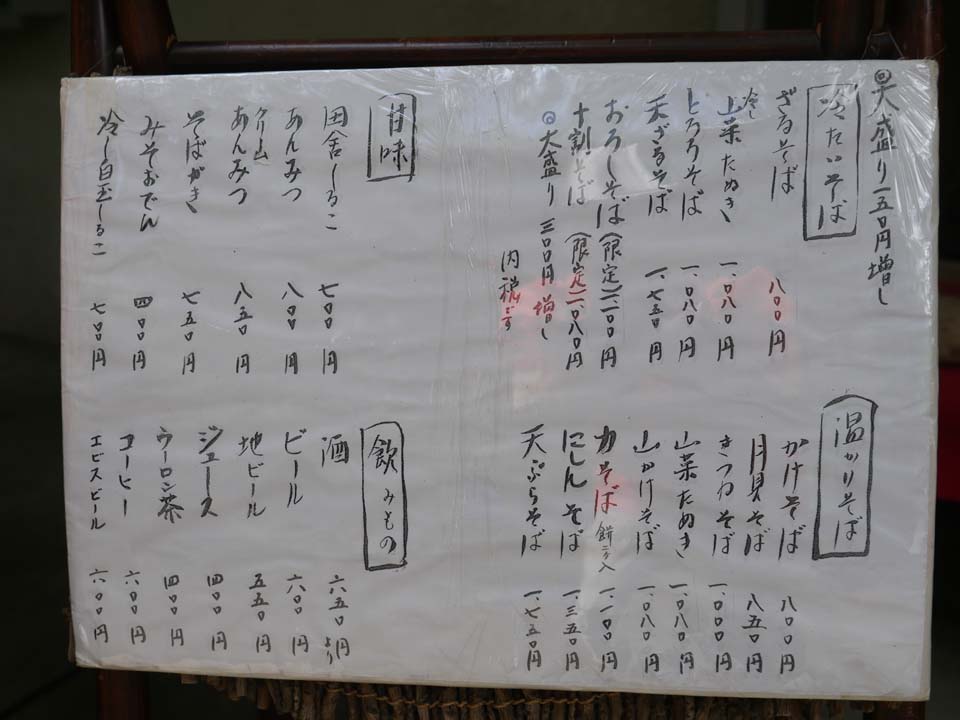 ◎大盛り一五〇円増し
冷たいそば
ざるそば 八〇〇円
冷し山菜たぬき 一、〇八〇円
とろろそば 一、〇八〇円
天ざるそば 一、七五〇円
おろしそば(限定)一、二〇〇円
十割そば(限定)一、〇八〇円
◎大盛り 三〇〇円増し
内税です
温かいそば
かけそば 八〇〇円
月見そば 八五〇円
きつねそば 一、〇〇〇円
山菜たぬき 一、〇八〇円
山かけそば 一、〇八〇円
力そば 餅二ヶ入 一、一〇〇円
にしんそば 一、三五〇円
天ぷらそば 一、七五〇円
甘味
田舎しるこ 七〇〇円
あんみつ 八〇〇円
クリームあんみつ 八五〇円
そばがき 七五〇円
みそおでん 四〇〇円
冷し白玉しるこ 七〇〇円
飲みもの
酒 六五〇円より
ビール 六〇〇円
地ビール 五五〇円
ジュース 四〇〇円
ウーロン茶 四〇〇円
コーヒー 六〇〇円
エビスビール 六〇〇円